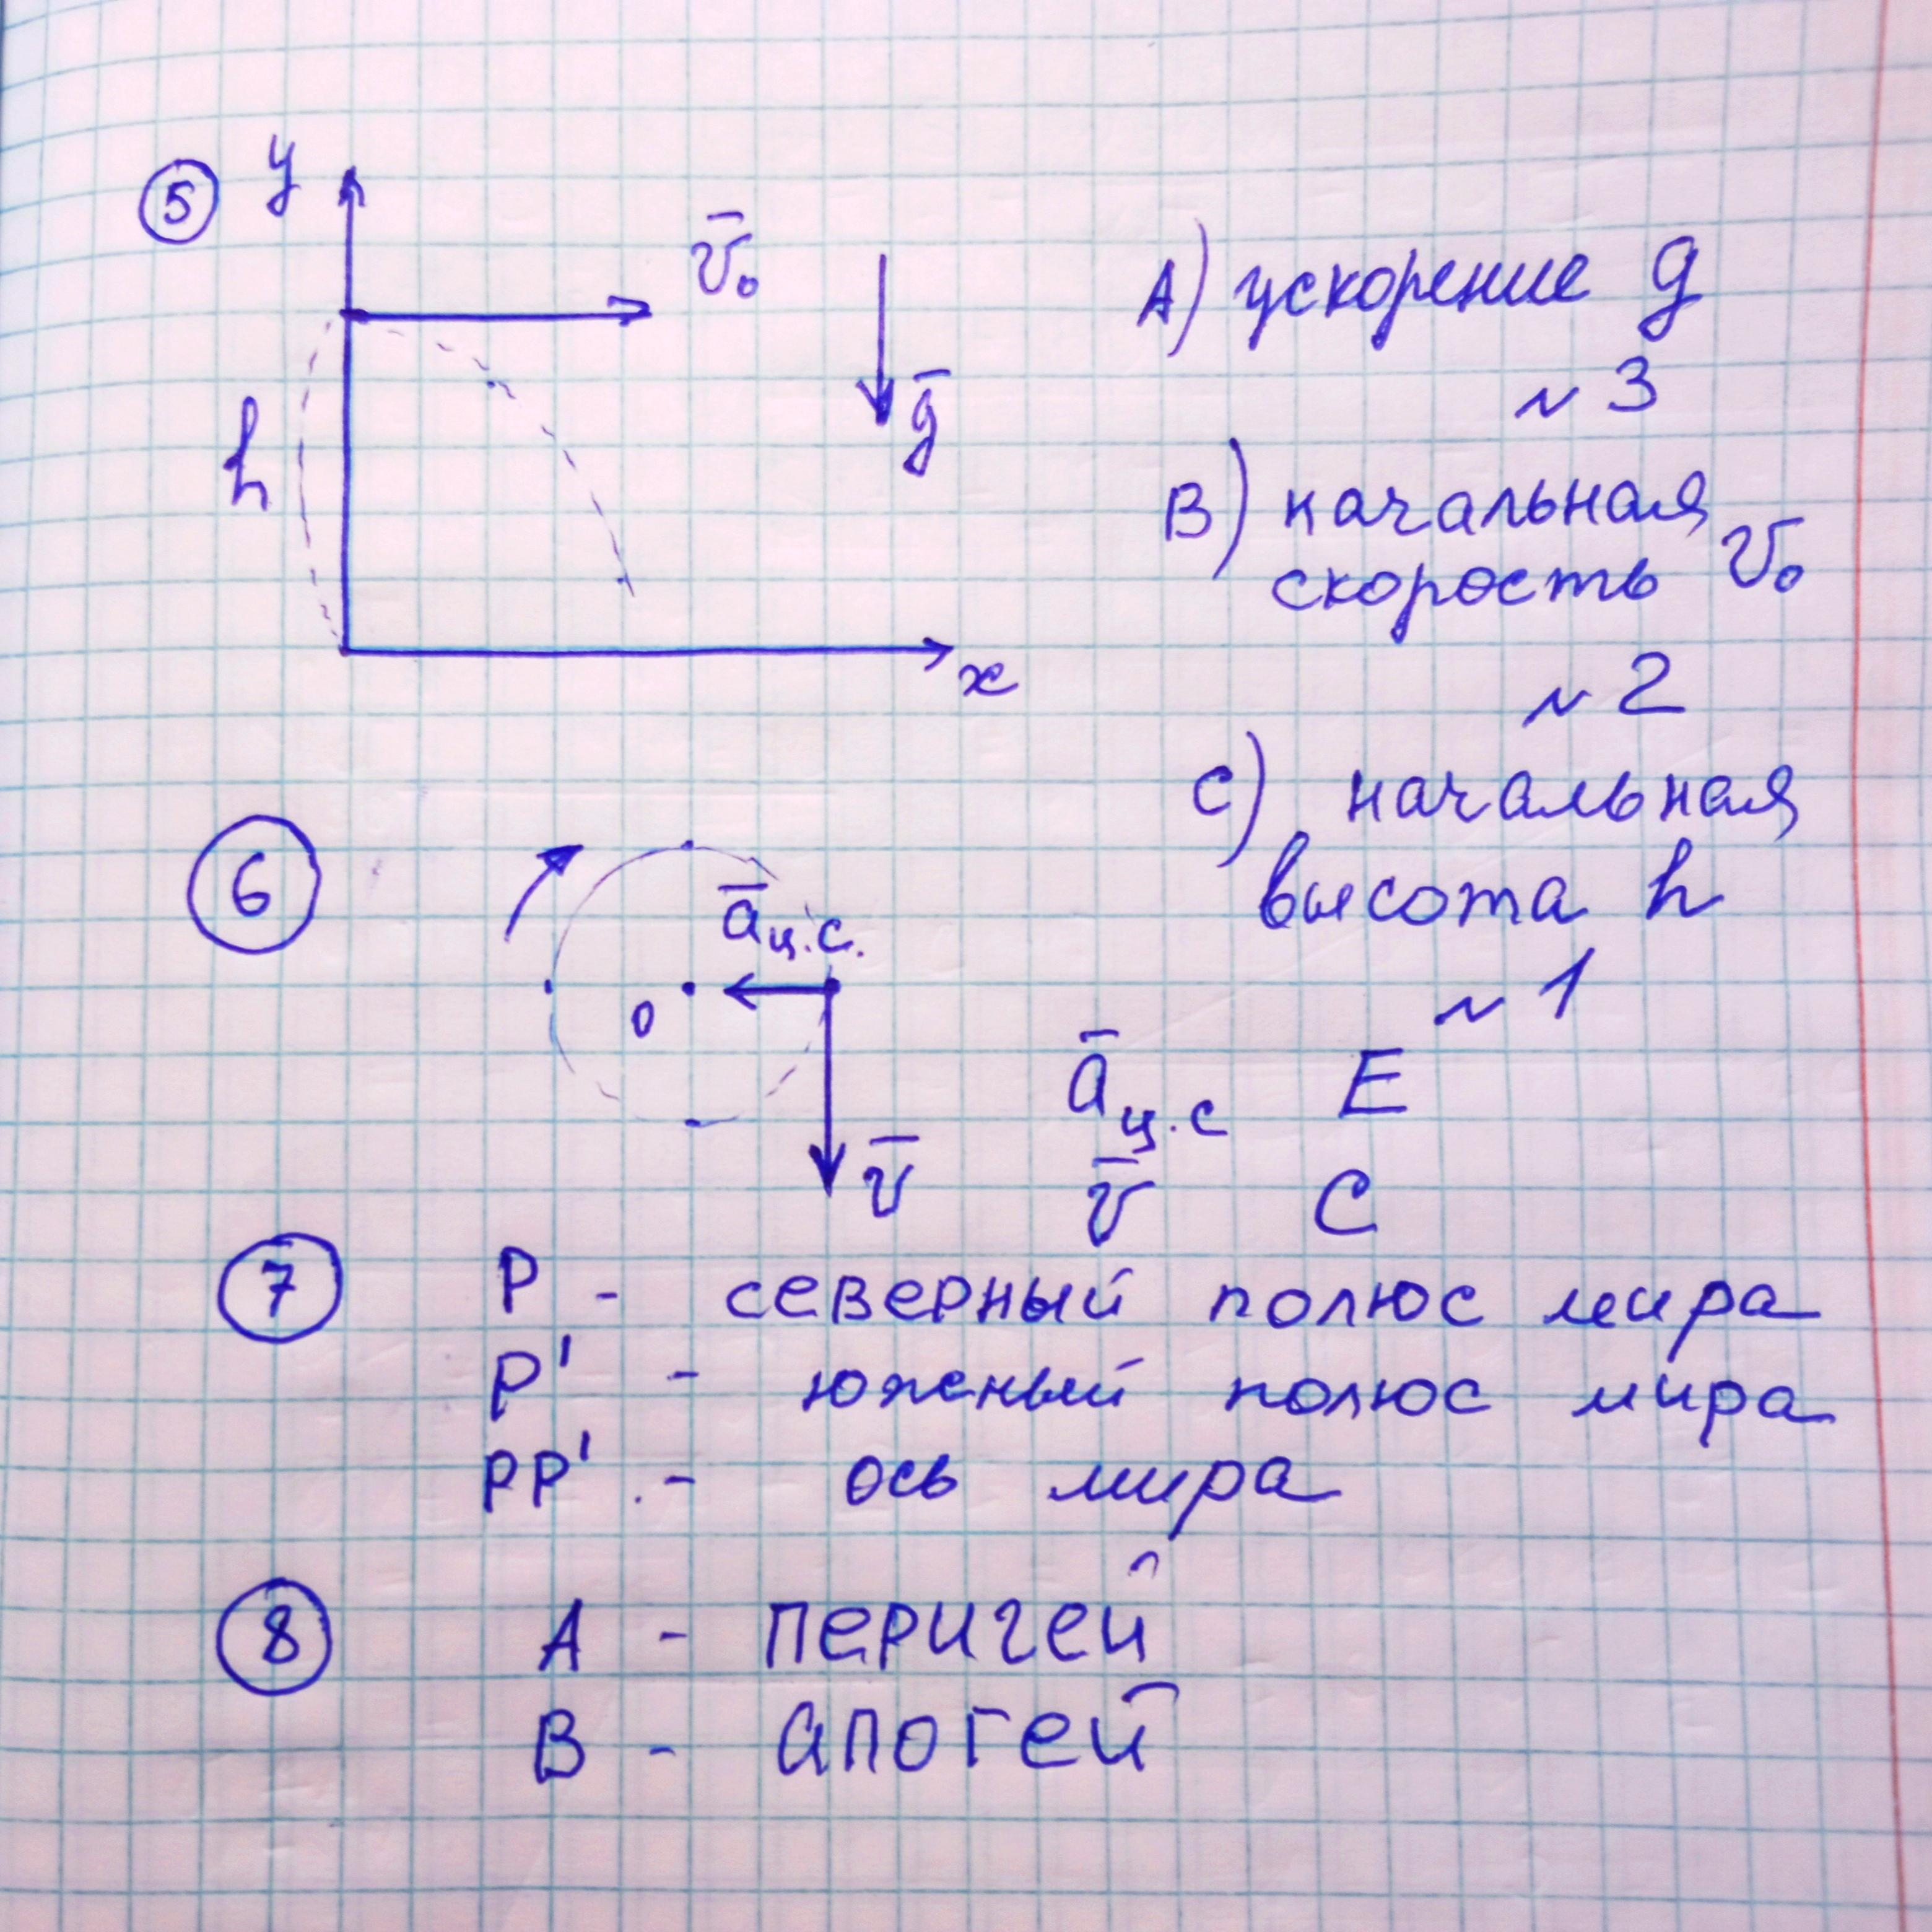 5
y
v̄₀
ḡ
h
x
A) ускорение g
~ 3
B) начальная
скорость v₀
~ 2
C) начальная
высота h
~ 1
6
āц.с.
0
v̄
āц.с E
v̄ C
7 P - северный полюс мира
P' - южный полюс мира
PP' - ось мира
8 A - перигей
B - апогей